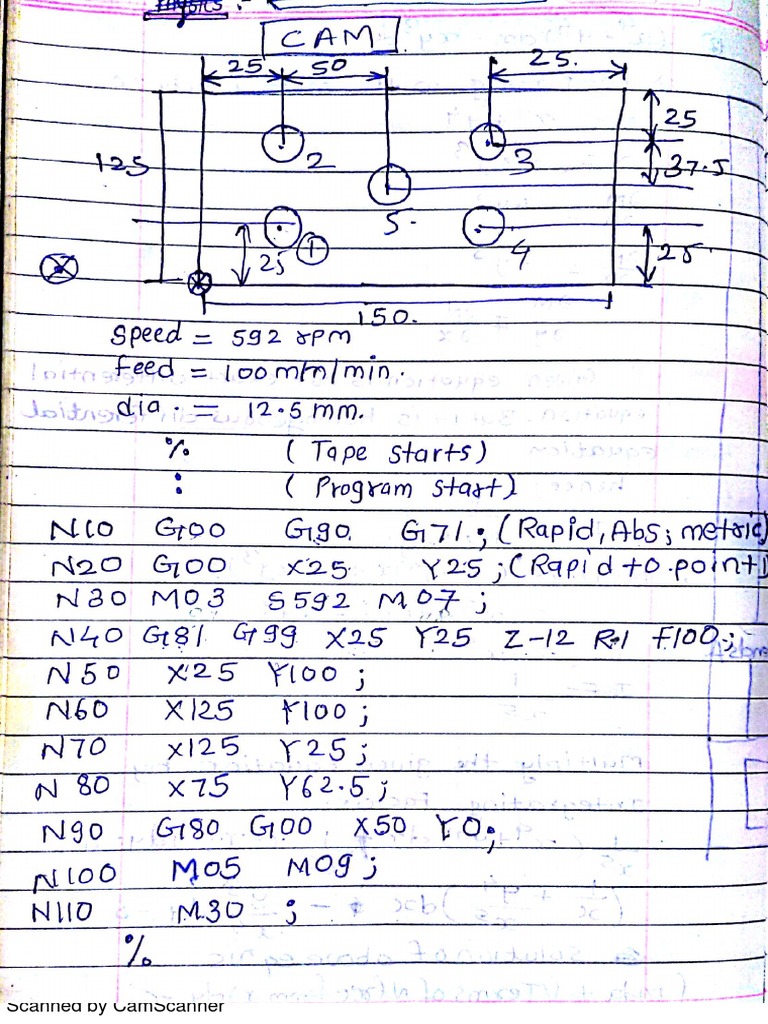 PHYSICS :-
CAM
25 50 25.
25
125
2 3
37.5
5.
25 1 4 25
150.
speed = 592 rpm
feed = 100 mm/min.
dia. = 12.5 mm.
% ( Tape starts)
: ( Program start)
N10 G00 G90 G71 ; (Rapid, Abs; metric)
N20 G00 X25 Y25 ; (Rapid to point)
N30 M03 S592 M07 ;
N40 G81 G99 X25 Y25 Z-12 R1 F100 ;
N50 X25 Y100 ;
N60 X125 Y100 ;
N70 X125 Y25 ;
N 80 X75 Y62.5 ;
N90 G80 G00 X50 Y0 ;
N100 M05 M09 ;
N110 M30 ;
%
Scanned by CamScanner